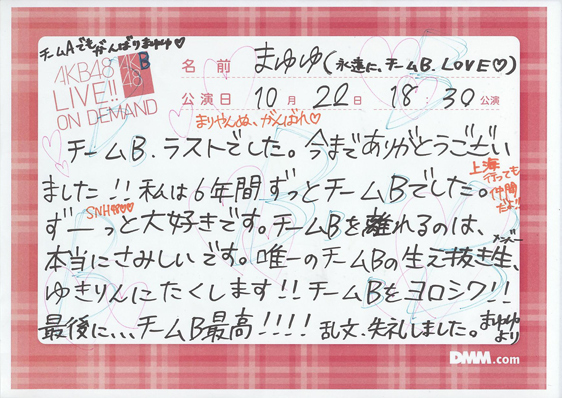 チームAでもがんばりまゆゆ♡
AKB48
LIVE!!
ON DEMAND
AKB
48
B
名前 まゆゆ(永遠に、チームB. LOVE♡)
公演日 10月22日 18:30公演
まりやんぬ、がんばれ♡
チームB.ラストでした。今までありがとうござい
ました!!私は6年間ずっとチームBでした。
上海
行っても
仲間
だよ!!
SNH♡♡♡
ずーっと大好きです。チームBを離れるのは、
本当にさみしいです。唯一のチームBの生え抜き生、
メンバー
ゆきりんにたくします!!チームBをヨロシク!!
最後に、、、チームB最高!!!!乱文、失礼しました。まゆゆ
より
DMM.com